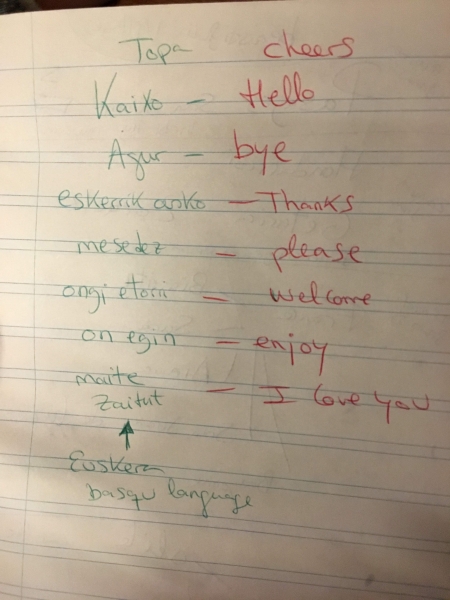 Topa cheers
Kaixo - Hello
Agur - bye
eskerrik asko - Thanks
mesedez - please
ongi etorri - welcome
on egin - enjoy
maite
zaitut - I love you
Euskera
basqu language